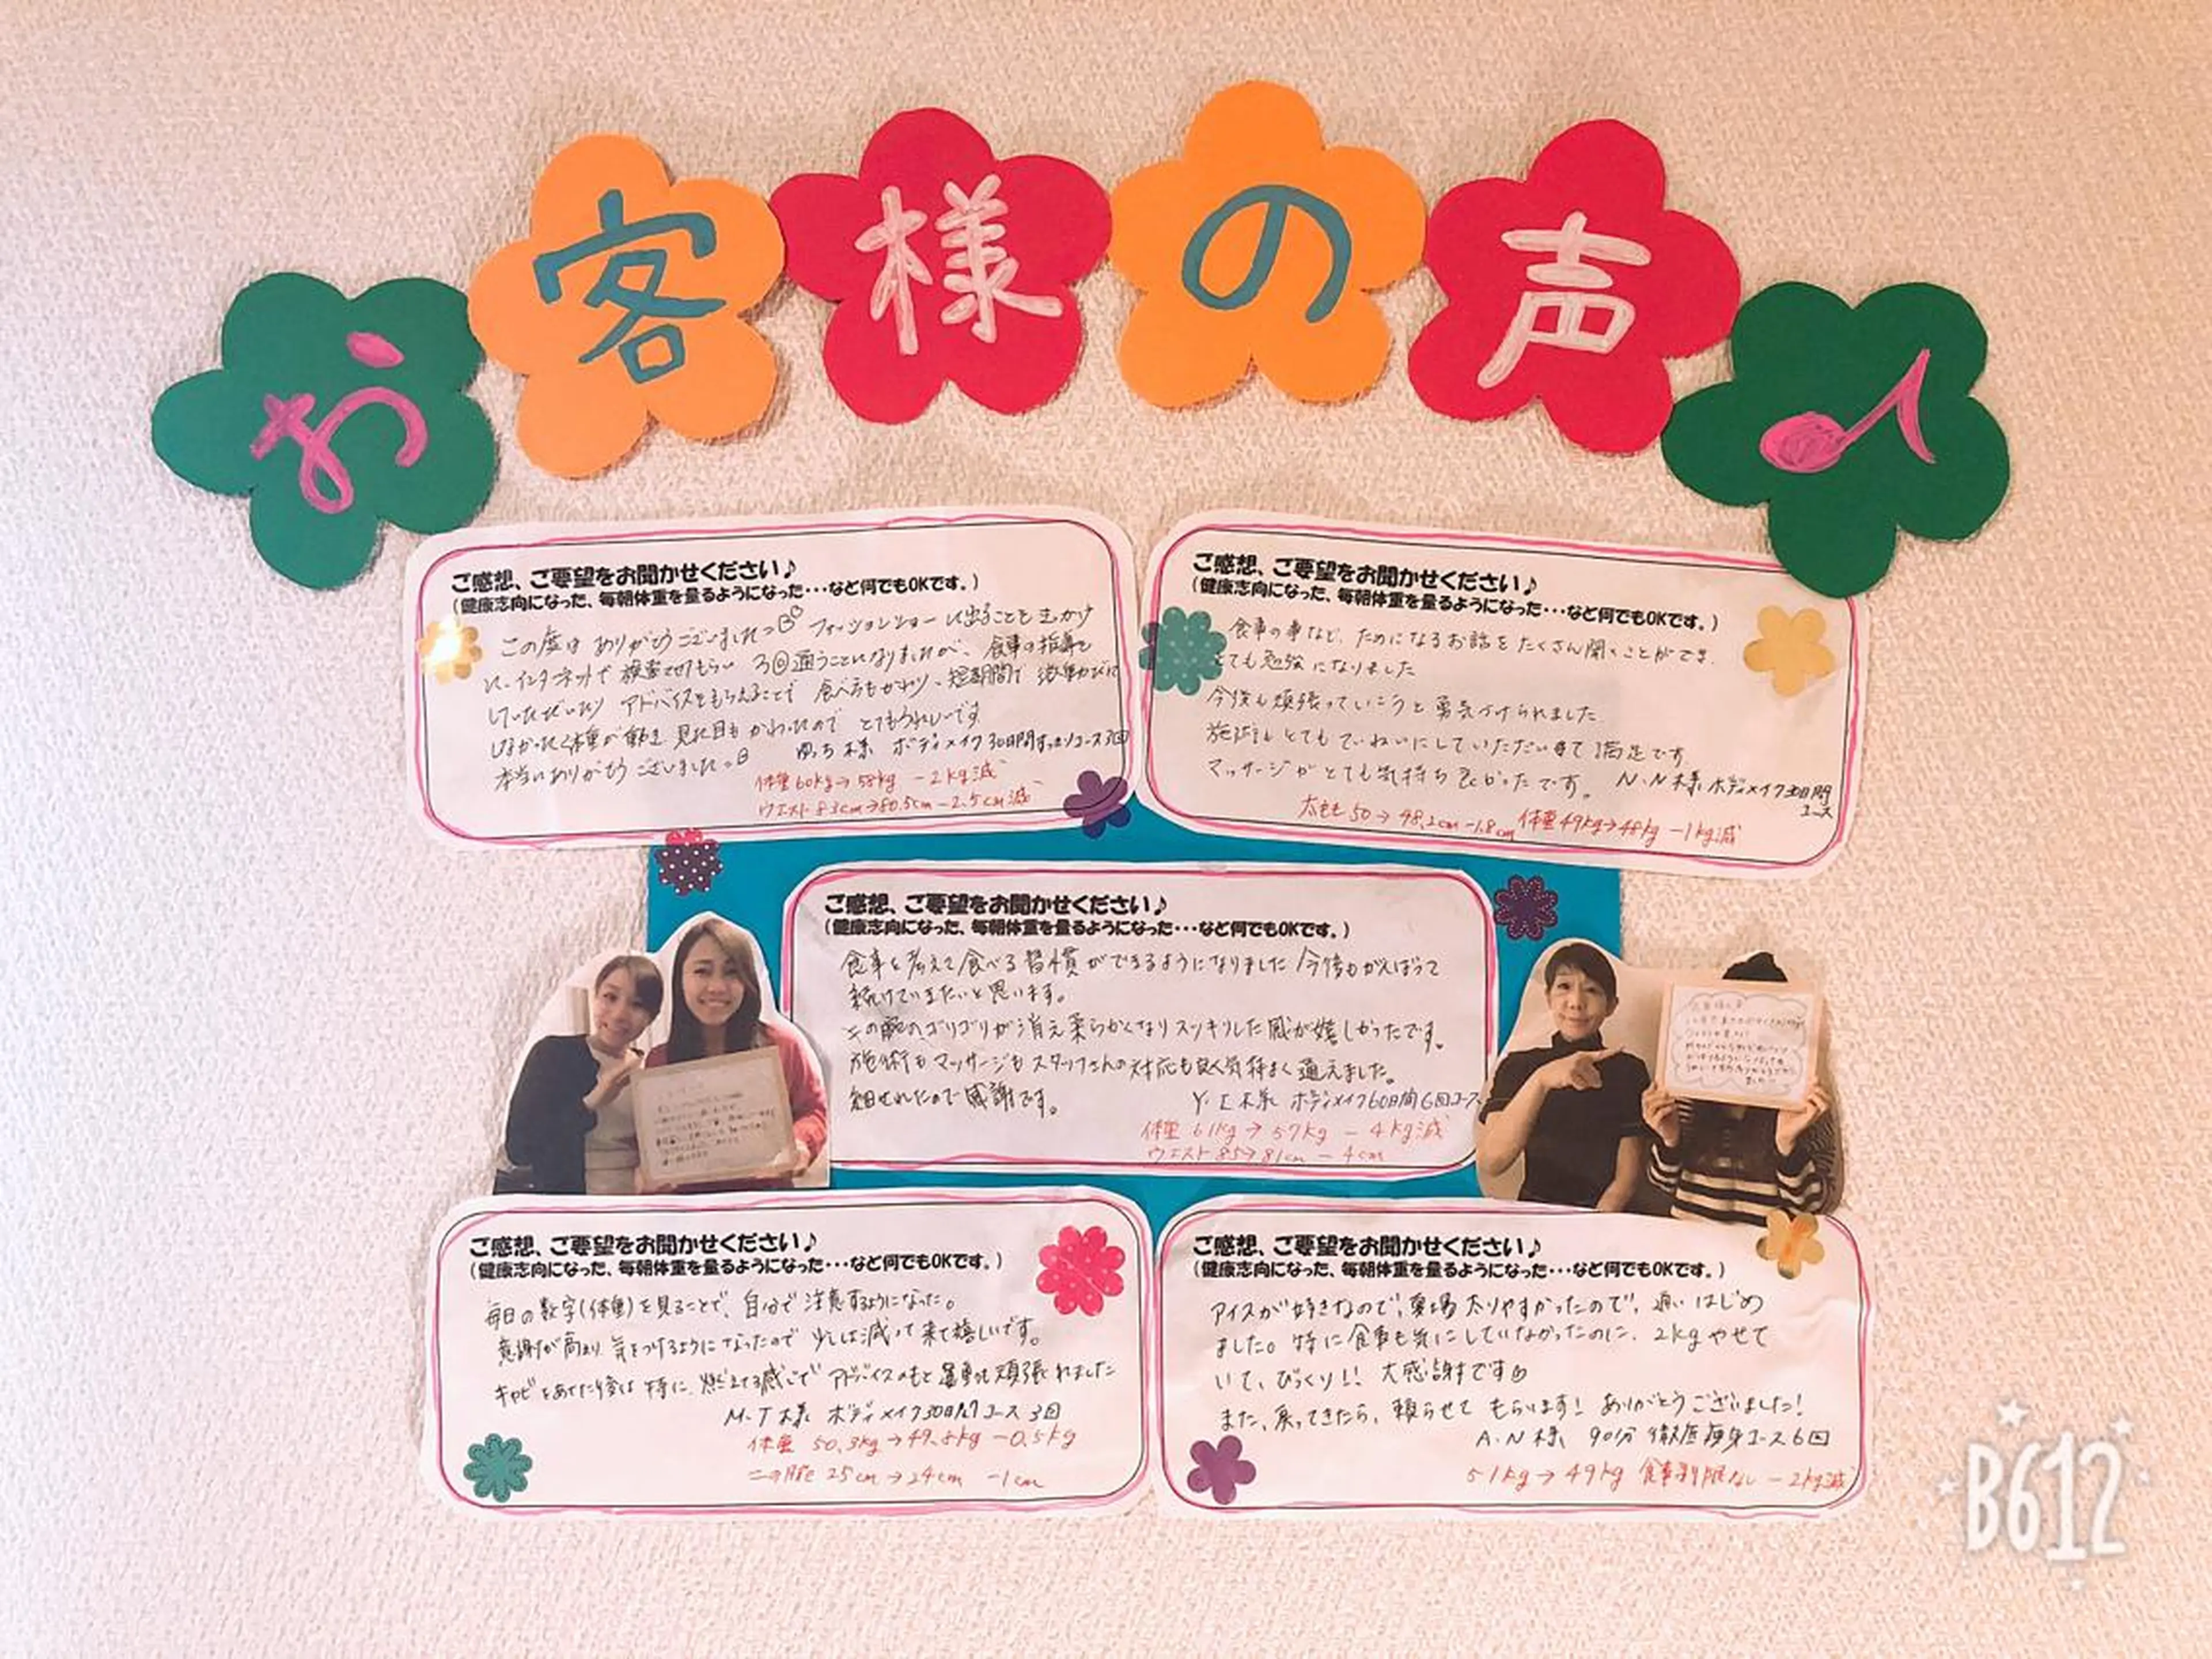 お客様の声♪
ご感想、ご要望をお聞かせください♪
(健康志向になった、毎朝体重を量るようになった・・・など何でもOKです。)
この度は ありがとうございました ファッションショーに出ることをきっかけ
に、インターネットで 検索させてもらい 3回通うことになりましたが、食事の指導を
していただいたり アドバイスをもらえることで 食べ方もかわり、短期間で
しなかった体重が動き 見た目も かわったので とてもうれしいです
本当にありがとう ございました。
様 ボディメイク30日間すっきりコース3回
体重60kg→58kg －2kg減
ウエスト83cm→80.5cm－2.5cm減
ご感想、ご要望をお聞かせください♪
(健康志向になった、毎朝体重を量るようになった・・・など何でもOKです。)
食事の事など、ためになるお話をたくさん聞くことができ、
とても勉強になりました
今後も頑張っていこうと勇気づけられました
施術もとてもていねいにしていただいて満足です
マッサージがとても気持ち良かったです。
N.N様 ボディメイク30日間
コース
太もも50→48.2cm－1.8cm 体重49kg→48kg －1kg減
ご感想、ご要望をお聞かせください♪
(健康志向になった、毎朝体重を量るようになった・・・など何でもOKです。)
食事を考えて食べる習慣ができるようになりました 今後もがんばって
続けていきたいと思います。
二の腕のゴリゴリが消え柔らかくなりスッキリした感が嬉しかったです。
施術もマッサージもスタッフさんの対応も良く気持よく通えました。
痩せれたので感謝です。
Y.I様 ボディメイク60日間6回コース
体重 61kg→57kg －4kg減
ウエスト85→81cm －4cm
ご感想、ご要望をお聞かせください♪
(健康志向になった、毎朝体重を量るようになった・・・など何でもOKです。)
毎日の数字(体重)を見ることで、自分で注意するようになった。
意識が高まり 気をつけるようになったので 少しは減って来て嬉しいです。
キャビをあてた後は 特に、燃えてる感じで アドバイスのもと 運動も頑張れました
M.T様 ボディメイク30日間コース 3回
体重 50.3kg→49.8kg －0.5kg
二の腕 25cm→24cm －1cm
ご感想、ご要望をお聞かせください♪
(健康志向になった、毎朝体重を量るようになった・・・など何でもOKです。)
アイスが好きなので、夏場太りやすかったので、通いはじめ
ました。特に食事も気にしていなかったのに、2kgやせて
いて、びっくり!! 大感謝です
また、戻ってきたら、頼らせてもらいます! ありがとうございました!
A.N様 90分 徹底痩身コース6回
51kg→49kg 食事制限なし －2kg減
B612